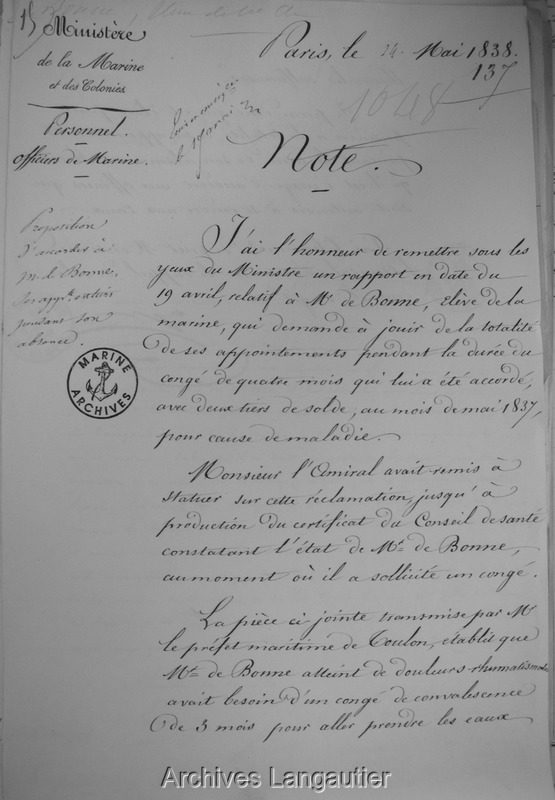 15
Ministère
de la Marine
et des Colonies
Personnel.
officiers de Marine.
Paris, le 24 Mai 1838.
137
1048
Note.
Proposition
d'accorder à
M. de Bonne,
pendant son
absence.
J'ai l'honneur de remettre sous les
yeux du Ministre un rapport en date du
19 avril, relatif à Mr de Bonne, élève de la
marine, qui demande à jouir de la totalité
de ses appointements pendant la durée du
congé de quatre mois qui lui a été accordé,
avec deux tiers de solde, au mois de mai 1837,
pour cause de maladie.
MARINE
ARCHIVES
Monsieur l'Amiral avait remis à
statuer sur cette réclamation, jusqu'à
production du certificat du Conseil de santé
constatant l'état de Mr de Bonne,
au moment où il a sollicité un congé.
La pièce ci jointe transmise par Mr
le préfet maritime de Toulon, établit que
Mr de Bonne atteint de douleurs rhumatismales
avait besoin d'un congé de convalescence
de 3 mois pour aller prendre les eaux
Archives Langautier